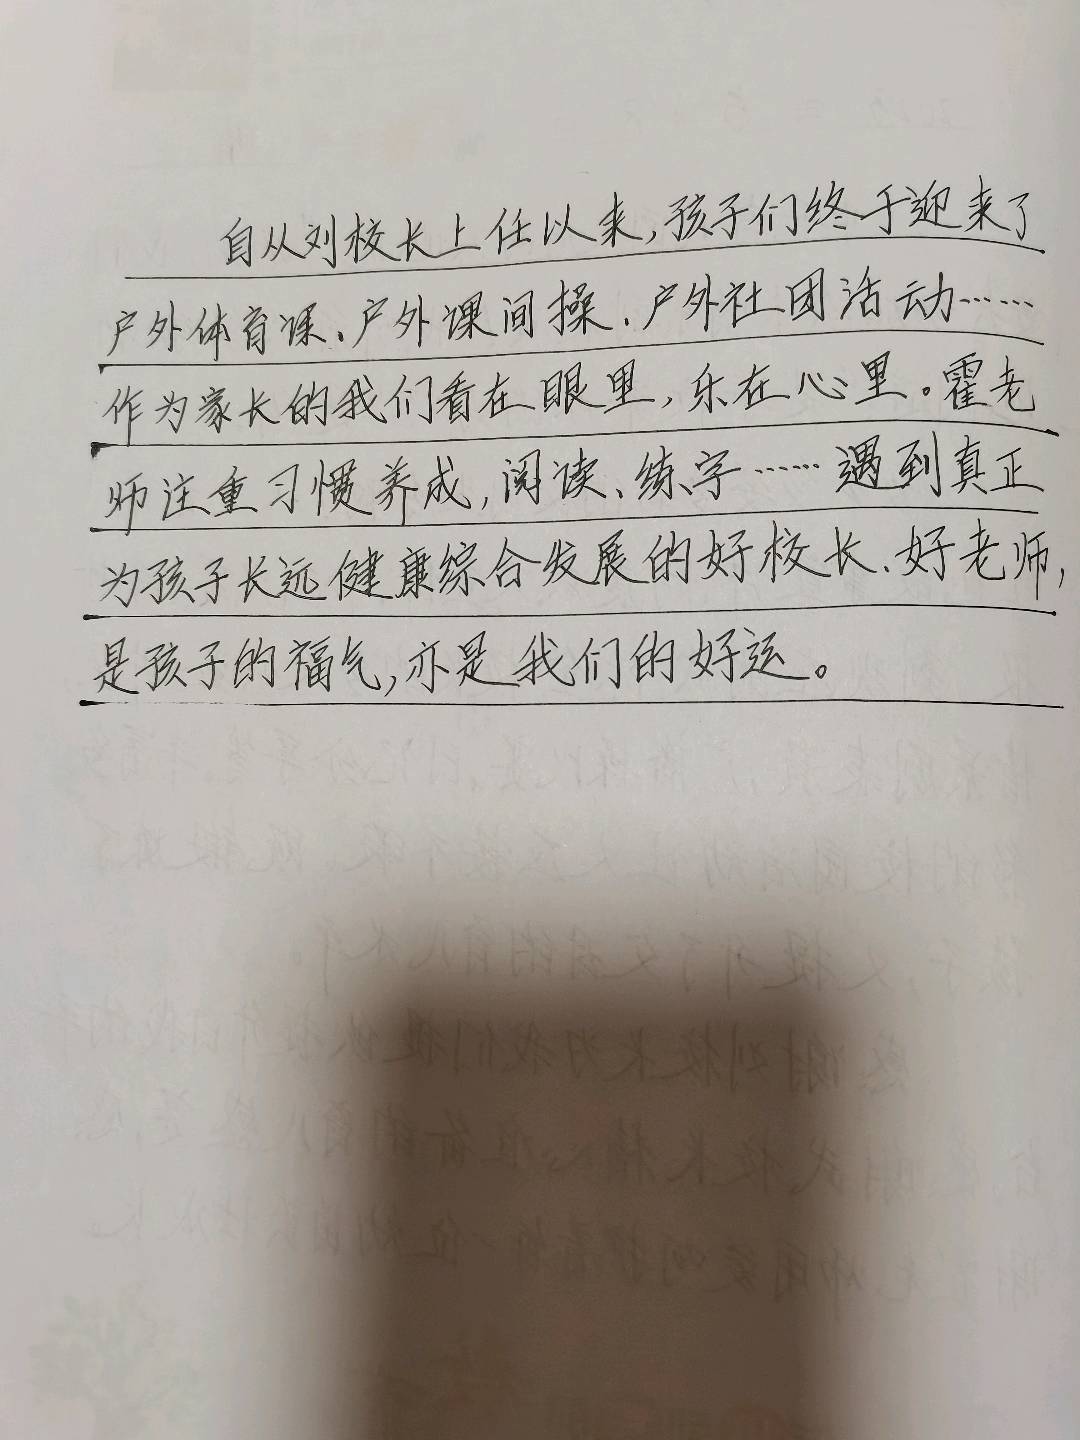 自从刘校长上任以来,孩子们终于迎来了
户外体育课、户外课间操、户外社团活动……
作为家长的我们看在眼里,乐在心里。霍老
师注重习惯养成,阅读、练字……遇到真正
为孩子长远健康综合发展的好校长、好老师,
是孩子的福气,亦是我们的好运。